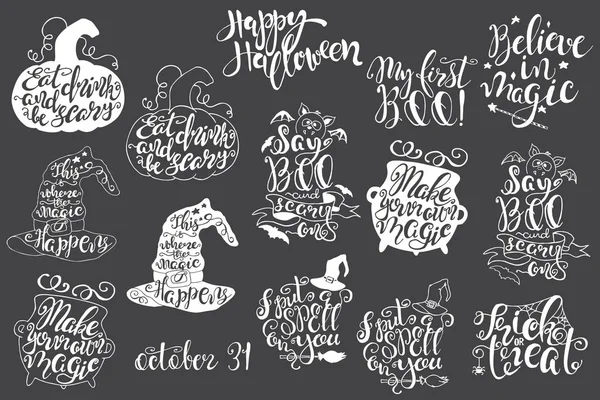 Happy
Halloween
Eat drink
and
be scary
Eat drink
and
be scary
My first
BOO!
Believe
in
magic
This
is
where
the
magic
Happens
This
is
where
the
magic
Happens
Say
BOO
and
scary
on
Make
your own
magic
Say
BOO
and
scary
on
Make
your own
magic
october 31
I put a
SPELL
on you
I put a
SPELL
on you
Trick
OR
treat